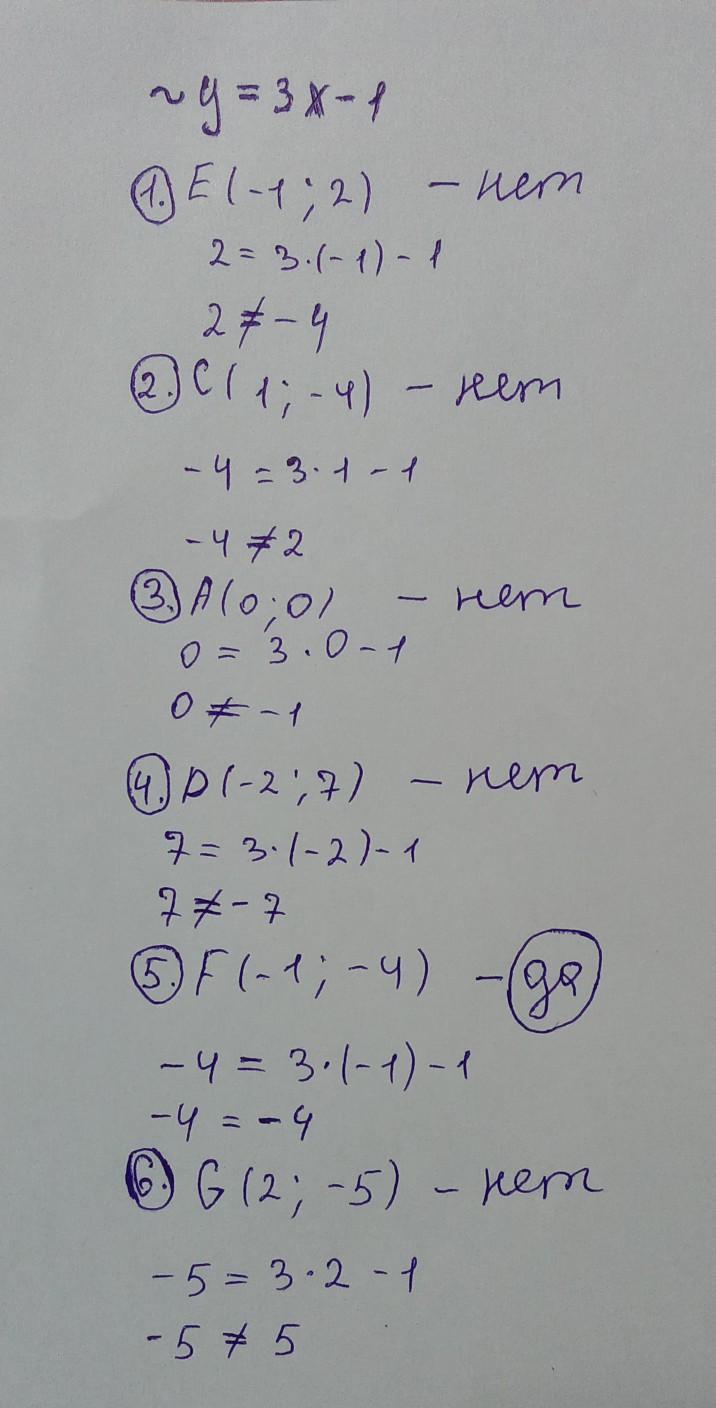 ~ y = 3x - 1
1. E(-1; 2) - нет
2 = 3·(-1) - 1
2 ≠ -4
2. C(1; -4) - нет
-4 = 3·1 - 1
-4 ≠ 2
3. A(0; 0) - нет
0 = 3·0 - 1
0 ≠ -1
4. D(-2; 7) - нет
7 = 3·(-2) - 1
7 ≠ -7
5. F(-1; -4) - да
-4 = 3·(-1) - 1
-4 = -4
6. G(2; -5) - нет
-5 = 3·2 - 1
-5 ≠ 5